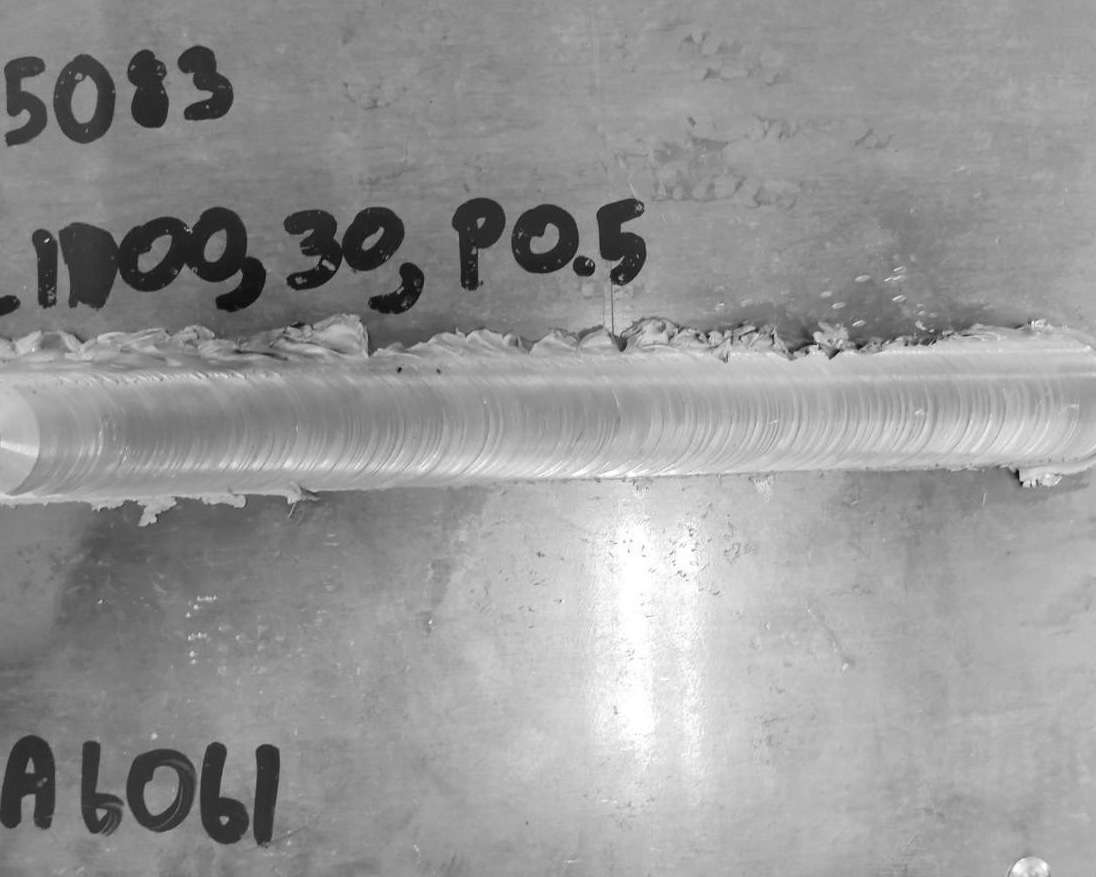 5083
1000, 30, P0.5
A6061